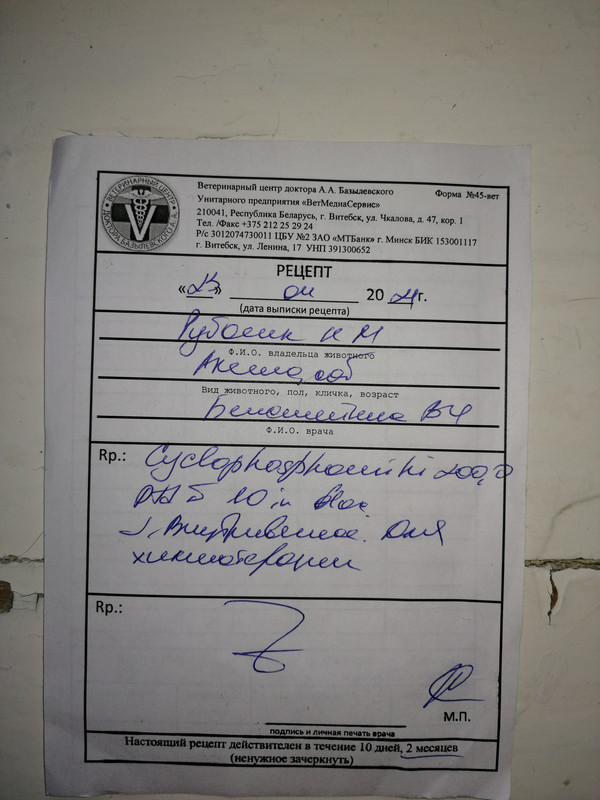 ВЕТЕРИНАРНЫЙ ЦЕНТР
ДОКТОРА БАЗЫЛЕВСКОГО А.А.
V
Ветеринарный центр доктора А.А. Базылевского
Форма №45-вет
Унитарного предприятия «ВетМедиаСервис»
210041, Республика Беларусь, г. Витебск, ул. Чкалова, д. 47, кор. 1
Тел. /Факс +375 212 25 29 24
Р/с 3012074730011 ЦБУ №2 ЗАО «МТБанк» г. Минск БИК 153001117
г. Витебск, ул. Ленина, 17 УНП 391300652
РЕЦЕПТ
« » 20 г.
(дата выписки рецепта)
Ф.И.О. владельца животного
соб
Вид животного, пол, кличка, возраст
Ф.И.О. врача
Rp.: Cyclophosphamihi 200,0
10 in
Внутривенно. Для
химиотерапии
Rp.:
М.П.
подпись и личная печать врача
Настоящий рецепт действителен в течение 10 дней, 2 месяцев
(ненужное зачеркнуть)